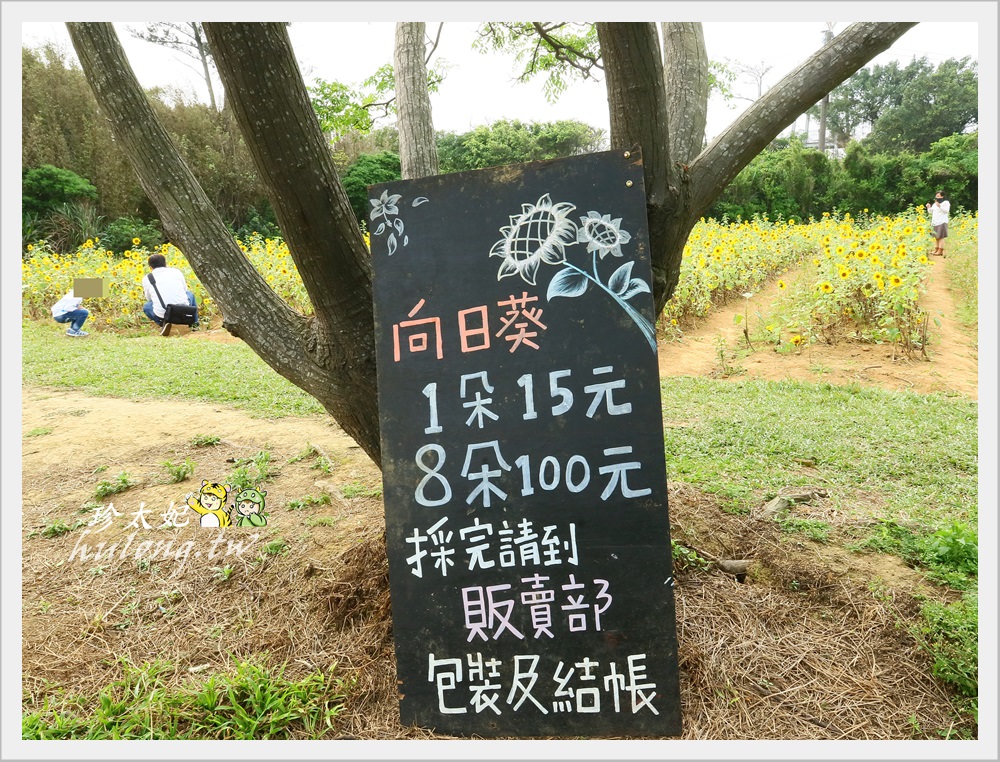 向日葵
1朵15元
8朵100元
採完請到
販賣部
包裝及結帳
珍太妃
hulong.tw